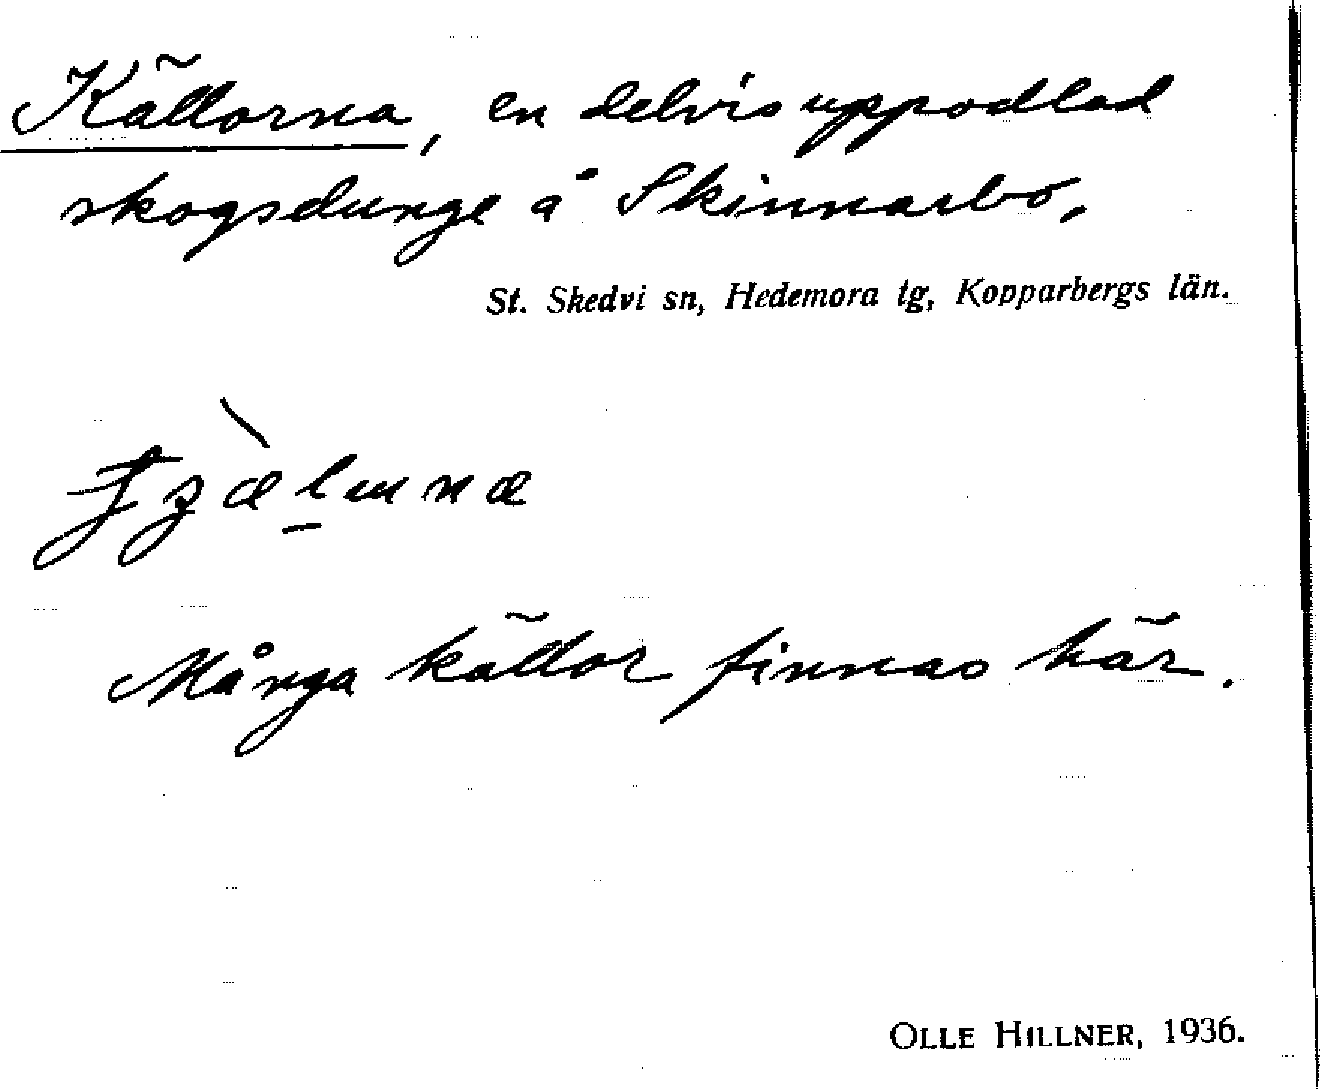 Källorna, en delvis uppodlad
skogsdunge å Skinnarbo,
St. Skedvi sn, Hedemora tg, Kopparbergs län.
Många källor finnas här.
OLLE HILLNER, 1936.